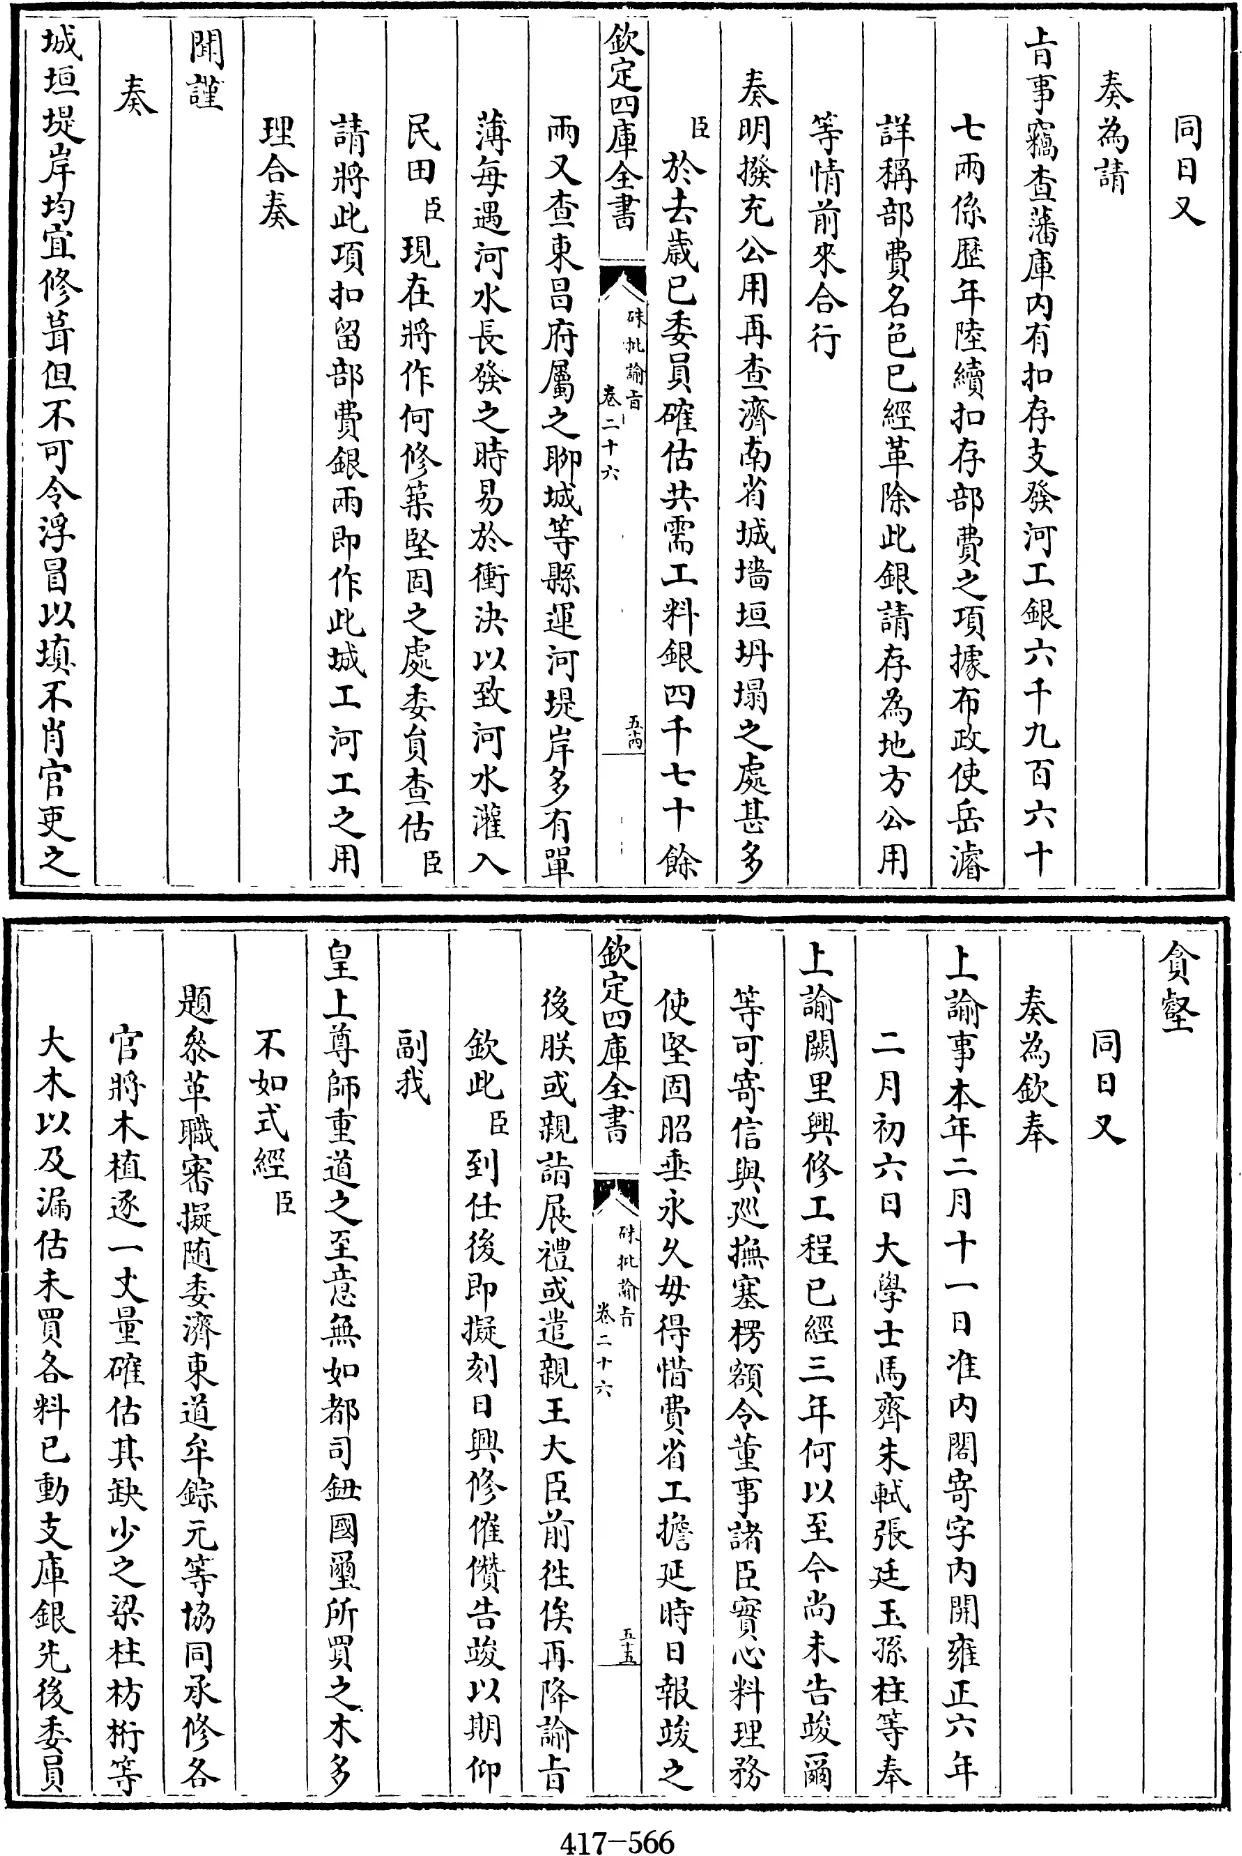 同日又
奏為請
旨事竊查藩庫内有扣存支發河工銀六千九百六十
七兩係歷年陸續扣存部費之項據布政使岳濬
詳稱部費名色已經革除此銀請存為地方公用
等情前來合行
奏明撥充公用再查濟南省城墻垣坍塌之處甚多
臣於去歲已委員確估共需工料銀四千七十餘
欽定四庫全書
硃批諭旨
卷二十六
五十四
兩又查東昌府屬之聊城等縣運河堤岸多有單
薄每遇河水長發之時易於衝決以致河水灌入
民田臣現在將作何修築堅固之處委員查估臣
請將此項扣留部費銀兩即作此城工河工之用
理合奏
聞謹
奏
城垣堤岸均宜修葺但不可令浮冒以填不肖官吏之
貪壑
同日又
奏為欽奉
上諭事本年二月十一日准内閣寄字内開雍正六年
二月初六日大學士馬齊朱軾張廷玉孫柱等奉
上諭闕里興修工程已經三年何以至今尚未告竣爾
等可寄信與廵撫塞楞額令董事諸臣實心料理務
使堅固昭垂永久毋得惜費省工擔延時日報竣之
欽定四庫全書
硃批諭旨
卷二十六
五十五
後朕或親詣展禮或遣親王大臣前徃俟再降諭旨
欽此臣到任後即擬刻日興修催儹告竣以期仰
副我
皇上尊師重道之至意無如都司鈕國璽所買之木多
不如式經臣
題叅革職審擬随委濟東道牟錝元等協同承修各
官將木植逐一丈量確估其缺少之梁柱枋桁等
大木以及漏估未買各料已動支庫銀先後委員
417-566